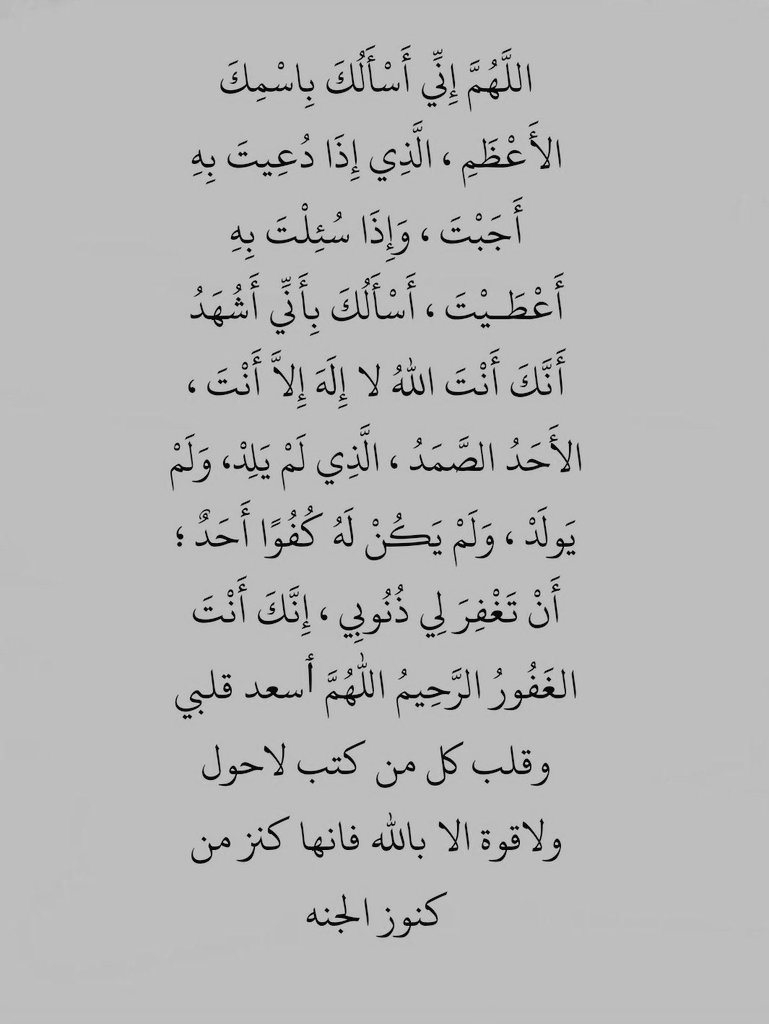 اللَّهُمَّ إِنِّي أَسْأَلُكَ بِاسْمِكَ
الأَعْظَمِ ، الَّذِي إِذَا دُعِيتَ بِهِ
أَجَبْتَ ، وَإِذَا سُئِلْتَ بِهِ
أَعْطَـيْتَ ، أَسْأَلُكَ بِأَنِّي أَشْهَدُ
أَنَّكَ أَنْتَ اللهُ لا إِلَهَ إِلاَّ أَنْتَ ،
الأَحَدُ الصَّمَدُ ، الَّذِي لَمْ يَلِدْ، وَلَمْ
يَولَدْ ، وَلَمْ يَكُنْ لَهُ كُفُوًا أَحَدٌ ؛
أَنْ تَغْفِرَ لِي ذُنُوبِي ، إِنَّكَ أَنْتَ
الغَفُورُ الرَّحِيمُ اللَّهُمَّ أسعد قلبي
وقلب كل من كتب لاحول
ولاقوة الا بالله فانها كنز من
كنوز الجنه